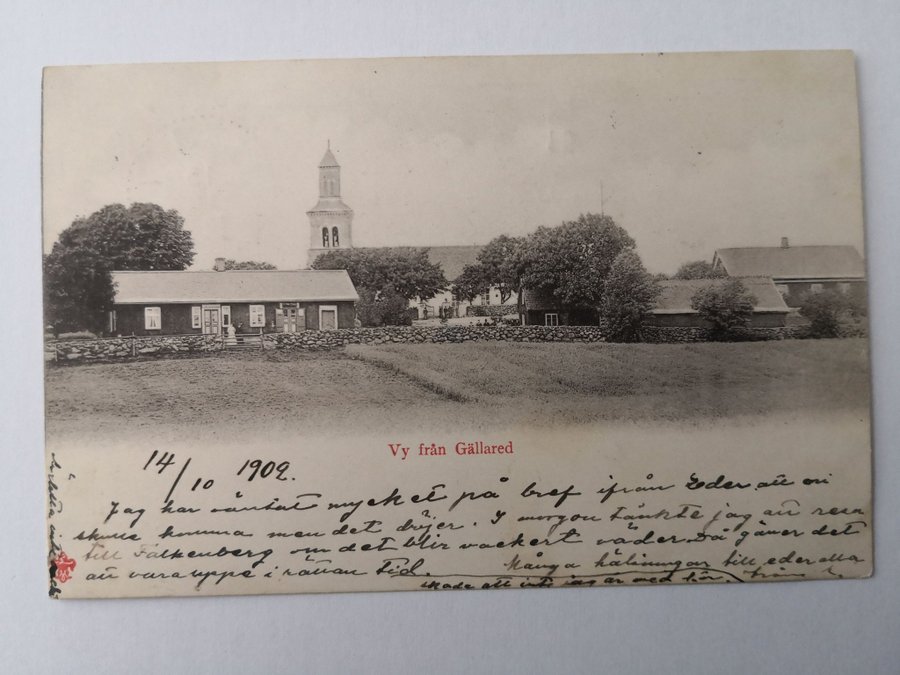 Vy från Gällared
14/10 1902.
Jag har väntat mycket på bref ifrån Eder, att ni
skulle komma men det dröjer. I morgon tänkte jag att resa
till Falkenberg om det blir vackert väder. Då gäller det
att vara uppe i rättan tid. Många hälsningar till eder alla
skada att inte jag är med